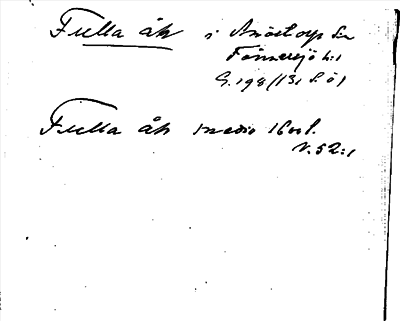 Fulla åk i Knöstorps Sn
Fönnersjö h:r
G. 198/131 S. Ö)
Fulla åk medio 1600t.
N. 52:1